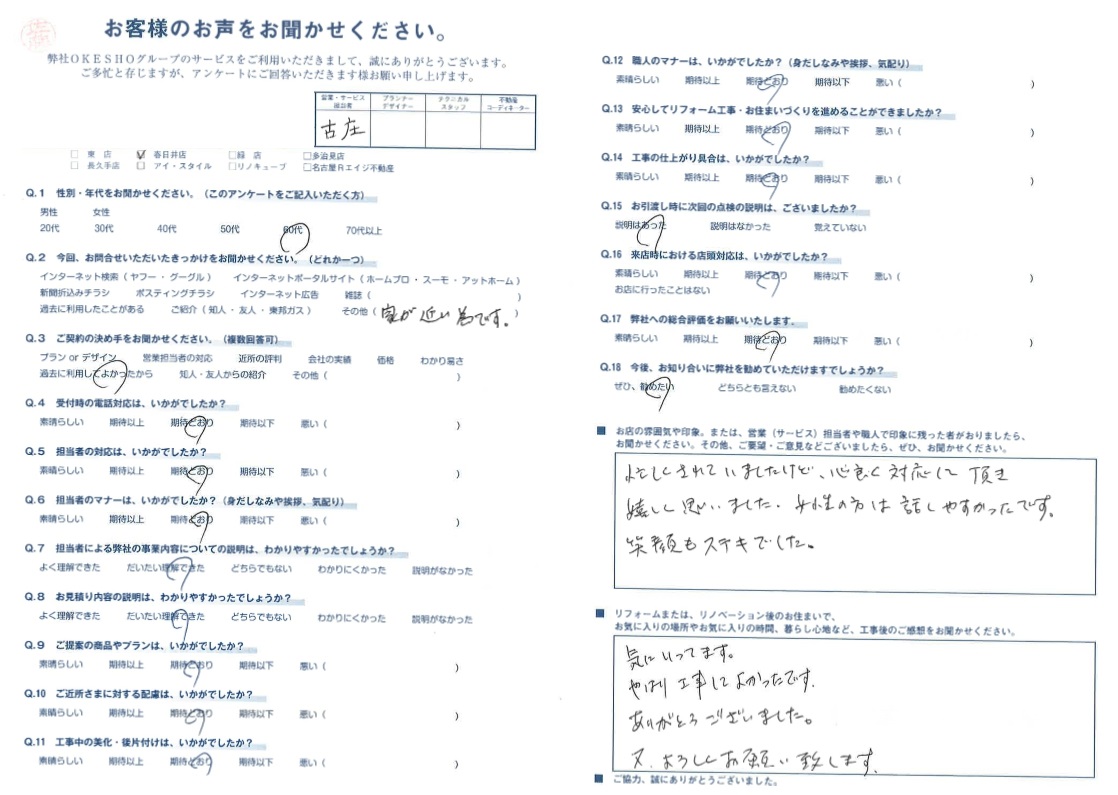 お客様のお声をお聞かせください。
弊社OKESHOグループのサービスをご利用いただきまして、誠にありがとうございます。
ご多忙と存じますが、アンケートにご回答いただきます様お願い申し上げます。
営業・サービス担当者 プランナーデザイナー テクニカルスタッフ 不動産コーディネーター
古庄
□ 東 店 ☑ 春日井店 □緑 店 □多治見店
□ 長久手店 □ アイ・スタイル □リノキューブ □名古屋Rエイジ不動産
Q.1 性別・年代をお聞かせください。（このアンケートをご記入いただく方）
男性 女性
20代 30代 40代 50代 60代 70代以上
Q.2 今回、お問合せいただいたきっかけをお聞かせください。（どれか一つ）
インターネット検索（ ヤフー ・ グーグル ） インターネットポータルサイト（ ホームプロ ・ スーモ ・ アットホーム ）
新聞折込みチラシ ポスティングチラシ インターネット広告 雑誌（ ）
過去に利用したことがある ご紹介（ 知人 ・ 友人 ・ 東邦ガス ） その他（ 家が近い為です。
Q.3 ご契約の決め手をお聞かせください。（複数回答可）
プラン or デザイン 営業担当者の対応 近所の評判 会社の実績 価格 わかり易さ
過去に利用してよかったから 知人・友人からの紹介 その他（ ）
Q.4 受付時の電話対応は、いかがでしたか？
素晴らしい 期待以上 期待どおり 期待以下 悪い（ ）
Q.5 担当者の対応は、いかがでしたか？
素晴らしい 期待以上 期待どおり 期待以下 悪い（ ）
Q.6 担当者のマナーは、いかがでしたか？（身だしなみや挨拶、気配り）
素晴らしい 期待以上 期待どおり 期待以下 悪い（ ）
Q.7 担当者による弊社の事業内容についての説明は、わかりやすかったでしょうか？
よく理解できた だいたい理解できた どちらでもない わかりにくかった 説明がなかった
Q.8 お見積り内容の説明は、わかりやすかったでしょうか？
よく理解できた だいたい理解できた どちらでもない わかりにくかった 説明がなかった
Q.9 ご提案の商品やプランは、いかがでしたか？
素晴らしい 期待以上 期待どおり 期待以下 悪い（ ）
Q.10 ご近所さまに対する配慮は、いかがでしたか？
素晴らしい 期待以上 期待どおり 期待以下 悪い（ ）
Q.11 工事中の美化・後片付けは、いかがでしたか？
素晴らしい 期待以上 期待どおり 期待以下 悪い（ ）
Q.12 職人のマナーは、いかがでしたか？（身だしなみや挨拶、気配り）
素晴らしい 期待以上 期待どおり 期待以下 悪い（ ）
Q.13 安心してリフォーム工事・お住まいづくりを進めることができましたか？
素晴らしい 期待以上 期待どおり 期待以下 悪い（ ）
Q.14 工事の仕上がり具合は、いかがでしたか？
素晴らしい 期待以上 期待どおり 期待以下 悪い（ ）
Q.15 お引渡し時に次回の点検の説明は、ございましたか？
説明はあった 説明はなかった 覚えていない
Q.16 来店時における店頭対応は、いかがでしたか？
素晴らしい 期待以上 期待どおり 期待以下 悪い（ ）
お店に行ったことはない
Q.17 弊社への総合評価をお願いいたします。
素晴らしい 期待以上 期待どおり 期待以下 悪い（ ）
Q.18 今後、お知り合いに弊社を勧めていただけますでしょうか？
ぜひ、勧めたい どちらとも言えない 勧めたくない
■ お店の雰囲気や印象。または、営業（サービス）担当者や職人で印象に残った者がおりましたら、
お聞かせください。その他、ご要望・ご意見などございましたら、ぜひ、お聞かせください。
忙しくされていましたけど、心良く対応して頂き
嬉しく思いました。女性の方は話しやすかったです。
笑顔もステキでした。
■ リフォームまたは、リノベーション後のお住まいで、
お気に入りの場所やお気に入りの時間、暮らし心地など、工事後のご感想をお聞かせください。
気にいってます。
やはり工事してよかったです.
ありがとうございました。
又、よろしくお願い致します.
■ ご協力、誠にありがとうございました。